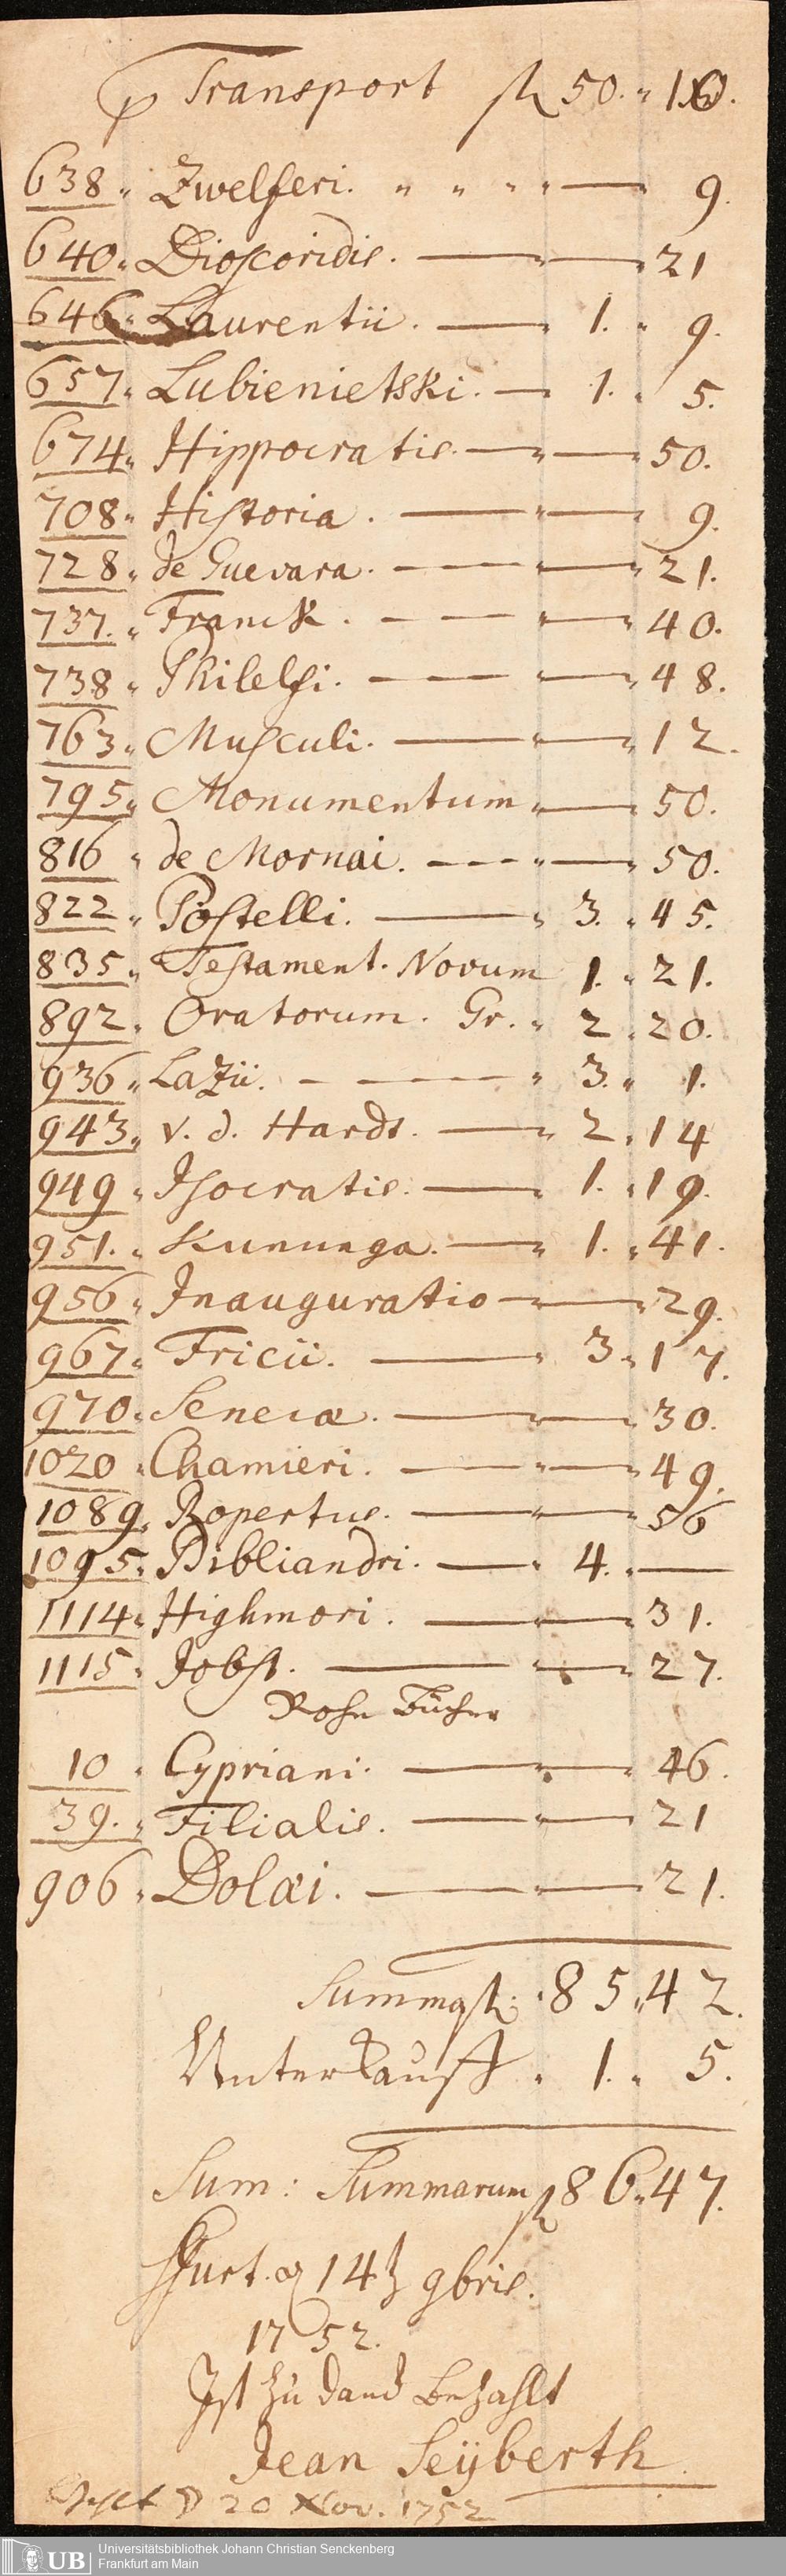 p Transport fl 50. „ 10.
638 „ Zwelferi. „ „ „ „ — „ 9.
640 „ Dioscoridis. — „ — „ 21
646 „ Laurentii. — „ 1. „ 9.
657 „ Lubienietski. — „ 1. „ 5.
674 „ Hippocratis. — „ — „ 50.
708 „ Historia. — „ — „ 9.
728 „ de Guevara. — „ — „ 21.
737. „ Franck. — — „ — „ 40.
738 „ Philelfi. — — „ — „ 48.
763 „ Musculi. — „ — „ 12.
795 „ Monumentum „ — „ 50.
816 „ de Mornai. — — „ — „ 50.
822 „ Postelli. — „ 3. „ 45.
835 „ Testament. Novum 1. „ 21.
892 „ Oratorum. Gr. „ 2 „ 20.
936 „ Lazii. — — „ 3. „ 1.
943 „ v. d. Hardt. — „ 2 „ 14
949 „ Isocratis. — „ 1. „ 19.
951. „ Kununga. — „ 1. „ 41.
956 „ Inauguratio — „ — „ 29.
967 „ Fricii. — „ 3 „ 17.
970 „ Senecæ. — „ — „ 30.
1020 „ Chamieri. — „ — „ 49.
1089 „ Ropertus. — „ — „ 56
1095 „ Bibliandri. — „ 4. „ —
1114 „ Highmori. — „ — „ 31.
1115 „ Jobst. — „ — „ 27.
Rohe Bücher
10 „ Cypriani. — „ — „ 46.
39. „ Filialis. — „ — „ 21
906 „ Dolæi. — „ — „ 21.
Summa fl. „ 85 „ 42.
Unterkauff „ 1. „ 5.
Sum: Summarum fl 86 „ 47.
ffurt. 14 9bris.
1752.
Ist zu danck bezahlt
Jean Seÿberth
20 Nov. 1752
UB Universitätsbibliothek Johann Christian Senckenberg
Frankfurt am Main